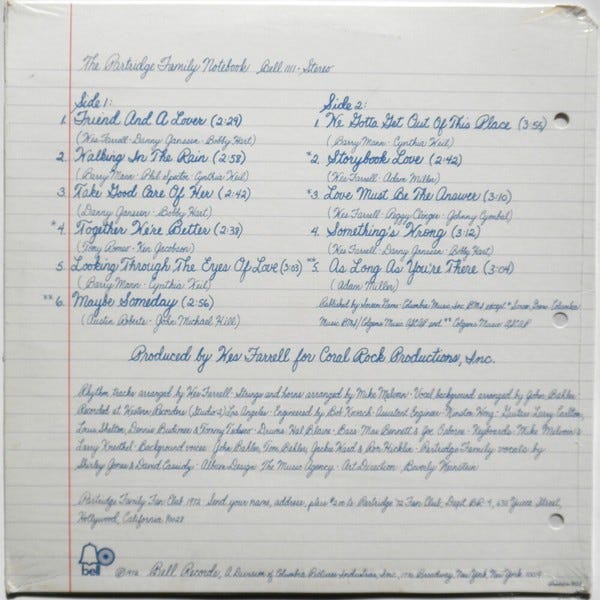 The Partridge Family Notebook Bell 1111 - Stereo
Side 1:
1. Friend And A Lover (2:29)
(Wes Farrell - Danny Janssen - Bobby Hart)
2. Walking In The Rain (2:58)
(Barry Mann - Phil Spector - Cynthia Weil)
3. Take Good Care Of Her (2:42)
(Danny Janssen - Bobby Hart)
*4. Together We're Better (2:38)
(Tony Romeo - Ken Jacobson)
5. Looking Through The Eyes Of Love (3:03)
(Barry Mann - Cynthia Weil)
**6. Maybe Someday (2:56)
(Austin Roberts - John Michael Hill)
Side 2:
1. We Gotta Get Out Of This Place (3:56)
(Barry Mann - Cynthia Weil)
*2. Storybook Love (2:42)
(Wes Farrell - Adam Miller)
*3. Love Must Be The Answer (3:10)
(Wes Farrell - Peggy Clinger - Johnny Cymbal)
4. Something's Wrong (3:12)
(Wes Farrell - Danny Janssen - Bobby Hart)
**5. As Long As You're There (3:04)
(Adam Miller)
Published by Screen Gems-Columbia Music Inc. BMI except * Screen Gems Columbia
Music BMI/Colgems Music ASCAP and ** Colgems Music ASCAP
Produced by Wes Farrell for Coral Rock Productions, Inc.
Rhythm tracks arranged by Wes Farrell - Strings and horns arranged by Mike Melvoin - Vocal background arranged by John Bahler
Recorded at Western Recorders (Studio 2) Los Angeles - Engineered by Bob Kovach - Assistant Engineer - Winston Wong - Guitars: Larry Carlton,
Louis Shelton, Dennis Budimer & Tommy Tedesco - Drums: Hal Blaine - Bass: Max Bennett & Joe Osborne - Keyboards - Mike Melvoin &
Larry Knechtel - Background voices: John Bahler, Tom Bahler, Jackie Ward & Ron Hicklin - Partridge Family vocals by
Shirley Jones & David Cassidy - Album Design: The Music Agency - Art Direction: Beverly Weinstein
Partridge Family Fan Club 1972 Send your name, address, plus $2.00 to: Partridge '72 Fan Club - Dept. BR-4, Street,
Hollywood, California 90028
bell
© 1972 Bell Records, A Division of Columbia Pictures Industries, Inc., 1776 Broadway, New York, New York 10019